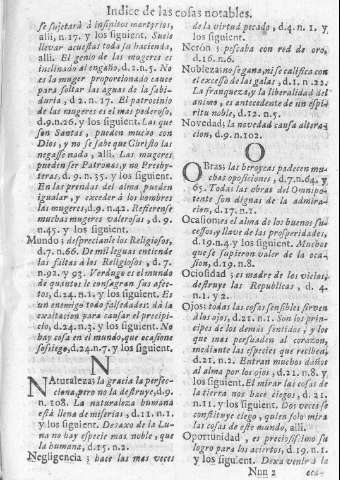 Indice de las cosas notables.
se sujetarà à infinitos martyrios,
alli, n.17. y los siguient. Suele
llevar acuestas toda su hacienda,
alli. El genio de las mugeres es
inclinado al engaño, d.2.n.5. No
es la muger proporcionado cauce
para soltar las aguas de la sabi-
duria, d 2. n. 17. El patrocinio
de las mugeres es el mas poderoso,
d.9.n.26. y los siguient. Las que
son Santas, pueden mucho con
Dios, y no se sabe que Christo las
negasse nada, alli. Las mugeres
pueden ser Patronas, y no Presby-
teras, d. 9. n. 35. y los siguient.
En las prendas del alma pueden
igualar, y exceder à los hombres
las mugeres, d.9. n.42. Refierense
muchas mugeres valerosas, d. 9.
n.45. y los siguient.
Mundo; desprecianle los Religiosos,
d.7. n.66. De mil leguas entiende
las faltas à los Religiosos, d.7.
n.92. y 93. Verdugo es el mundo
de quantos le consagran sus afec-
tos, d.24. n.1. y los siguient. Es
un enemigo todo falsedades: dà la
exaltacion para causar el precipi-
cio, d.24. n.3. y los siguient. No
hay cosa en el mundo, que ocasione
sossiego, d.24.n.7. y los siguient.
N
NAturaleza; la gracia la perfec-
ciona, pero no la destruye, d.9.
n. 108. La naturaleza humana
està llena de miserias, d.11. n.1.
y los siguient. Debaxo de la Lu-
na no hay especie mas noble, que
la humana, d.15. n.2.
Negligencia; hace las mas veces
de la virtud pecado, d.4. n. 1. y
los siguient.
Neròn; pescaba con red de oro,
d.16. n.6.
Nobleza; no se gana, ni se califica con
el excesso de las galas, d.1. n 22.
La franqueza, y la liberalidad del
animo, es antecedente de un espi-
ritu noble, d.12. n.5.
Novedad; la novedad causa altera-
cion, d.9. n.102.
O
OBras; las heroycas padecen mu-
chas oposiciones, d.7.n.64. y
65. Todas las obras del Omnipo-
tente son dignas de la admira-
cion, d.17. n.1.
Ocasion; es el alma de los buenos su-
cessos, y llave de las prosperidades,
d.19.n.4 y los siguient. Muchos
que se supieron valer de la oca-
sion, d.19. n.8.
Ociosidad; es madre de los vicios,
destruye las Republicas, d. 4.
n.1. y 2.
Ojos; todas las cosas sensibles sirven
à los ojos, d.21. n.1. Son los prin-
cipes de los demàs sentidos, y los
que mas persuaden al corazon,
mediante las especies que reciben,
d.21. n.2. Entran muchos daños
al alma por los ojos, d.21. n.8. y
los siguient. El mirar las cosas de
la tierra nos hace ciegos, d. 21.
n.11. y los siguient. Dos veces se
constituye ciego, quien solo mira
las cosas de este mundo, alli.
Oportunidad, es precisissimo su
logro para los aciertos, d 19. n.1.
y los siguient. Dexa venir à la
Nnn 2